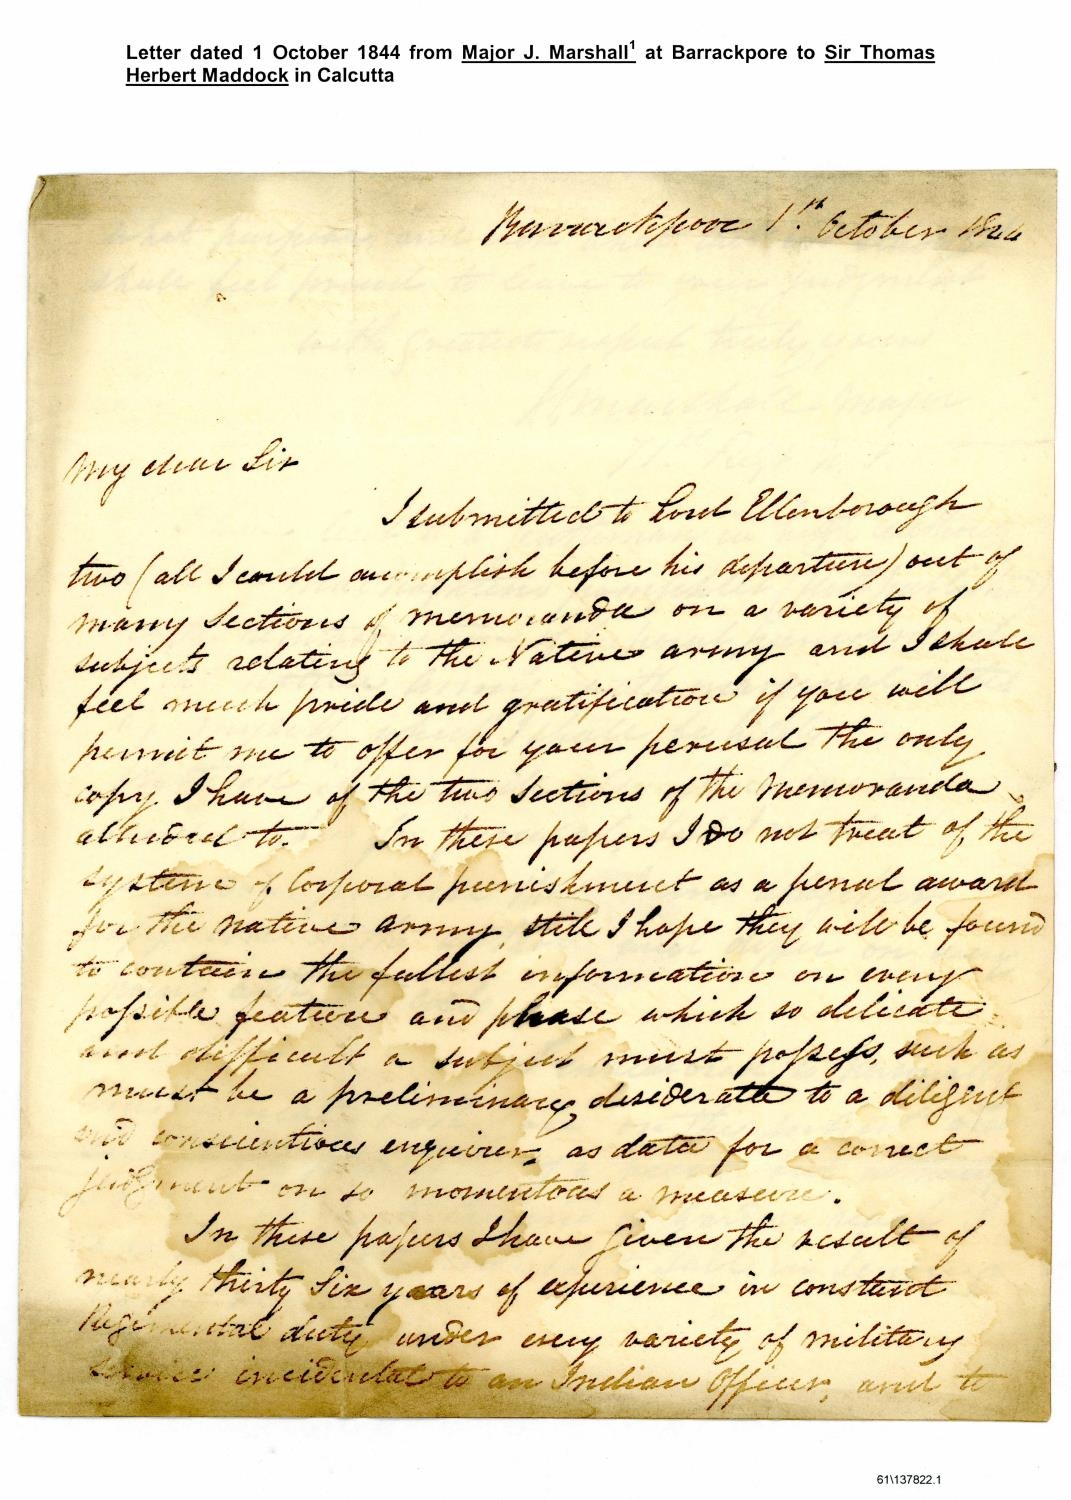 Letter dated 1 October 1844 from Major J. Marshall¹ at Barrackpore to Sir Thomas
Herbert Maddock in Calcutta
Barrackpore 1st. October 1844
My dear Sir
I submitted to Lord Ellenborough
two (all I could accomplish before his departure) out of
many Sections of memoranda on a variety of
subjects relating to the Native army and I shall
feel much pride and gratification if you will
permit me to offer for your perusal the only
copy I have of the two Sections of the Memoranda
alluded to. In these papers I do not treat of the
system of Corporal punishment as a penal award
for the native army, still I hope they will be found
to contain the fullest information on every
possible feature and phase which so delicate
and difficult a subject must possess, such as
must be a preliminary desiderata to a diligent
and conscientious enquirer, as data for a correct
judgment on so momentous a measure.
In these papers I have given the result of
nearly thirty Six years of experience in constant
Regimental duty under every variety of military
service incidental to an Indian Officer, and to
61\137822.1